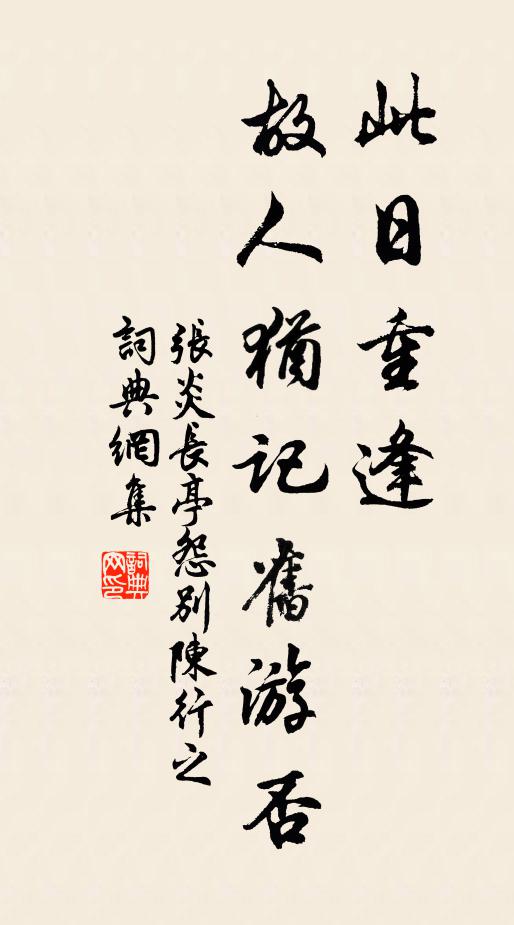 此日重逢
故人猶記舊游否
張炎長亭怨別陳行之
詞典網集
詞典網印